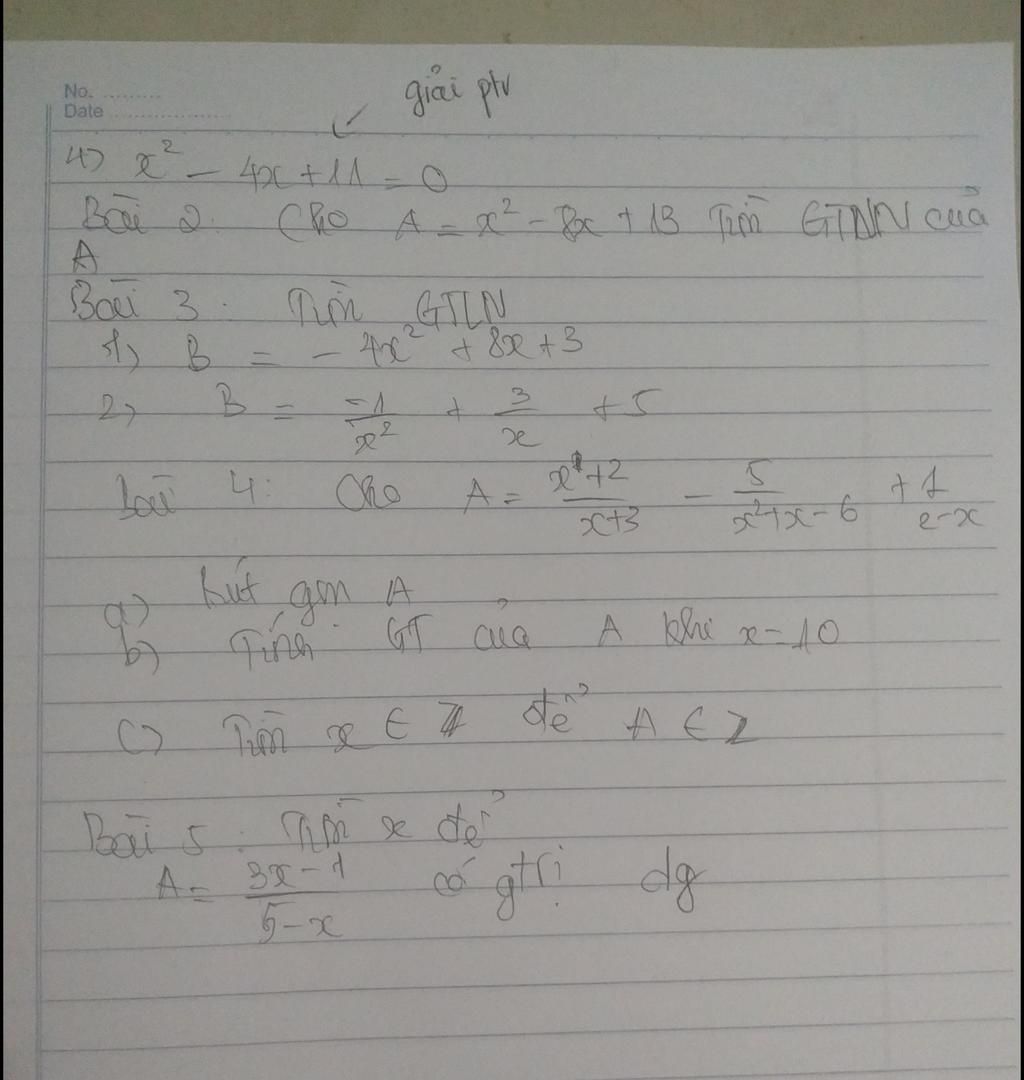 No. ..........
Date ....................
giải ptr
4) x² - 4x + 11 = 0
Bài 2. Cho A = x² - 8x + 13 Tìm GTNN của
A
Bài 3. Tìm GTLN
1) B = - 4x² + 8x + 3
2) B = -1/x² + 3/x + 5
Bài 4: Cho A = x+2/x+3 - 5/x²+x-6 + 1/2-x
a) Rút gọn A
b) Tính GT của A khi x = 10
c) Tìm x ∈ Z để A ∈ Z
Bài 5. Tìm x để
A = 3x-1/5-x có gtrị dg